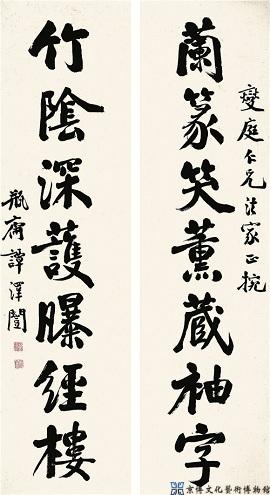 燮庭仁兄法家正捥
蘭篆笑薰藏袖字
竹陰深護曝經樓
瓶齋譚澤闓
京博文化藝術博物館